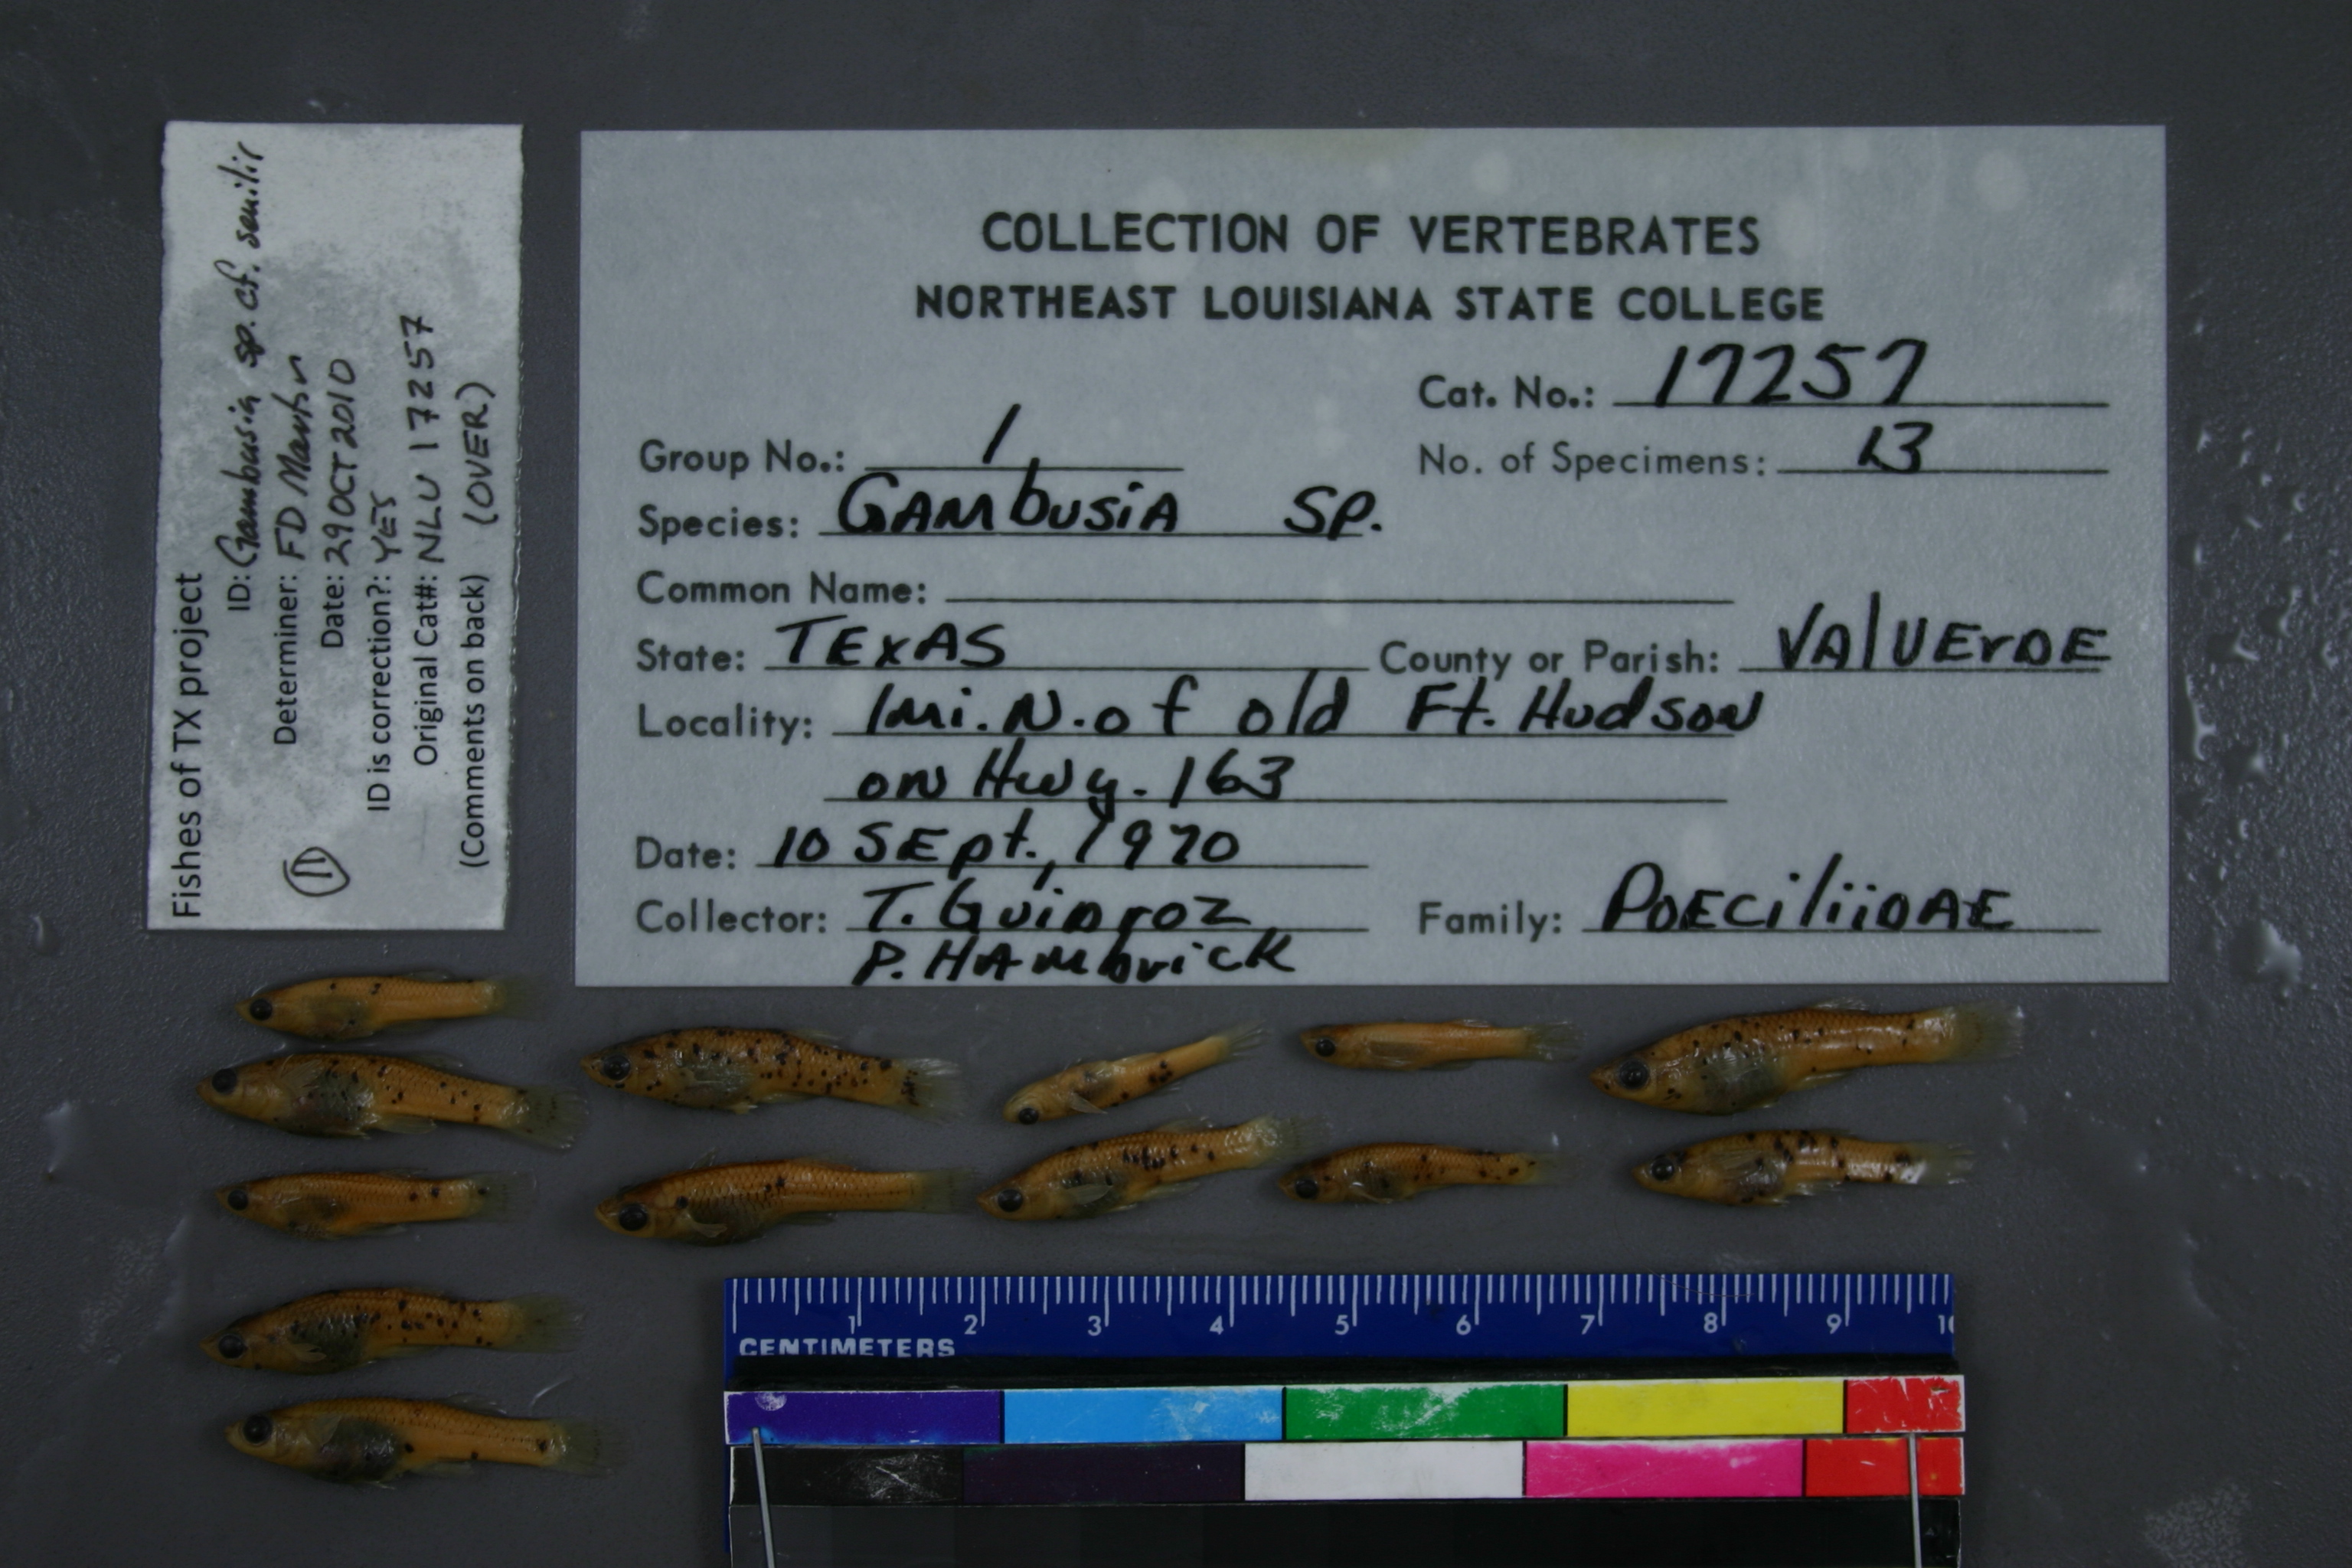 Fishes of TX project
ID: Gambusia sp. cf. senilis
Determiner: FD Martin
Date: 29 OCT 2010
ID is correction?: YES
Original Cat#: NLU 17257
(Comments on back) (OVER)
COLLECTION OF VERTEBRATES
NORTHEAST LOUISIANA STATE COLLEGE
Cat. No.: 17257
Group No.: 1
No. of Specimens: 13
Species: GAMbusiA SP.
Common Name:
State: TExAS
County or Parish: VAlVErDE
Locality: 1mi. N. of old Ft. Hudson
on Hwy. 163
Date: 10 SEpt., 1970
Collector: T. Guidroz
P. HAMbrick
Family: POECiliiDAE
1 2 3 4 5 6 7 8 9 10
CENTIMETERS